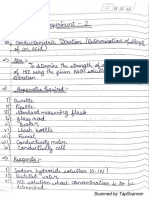 Experiment - 2
⇒ Conductometric Titration (Determination of strength of an acid)
⇒ Aim :-
To determine the strength of a
of HCl using the given NaOH solution
titration.
⇒ Apparatus Required :-
i) Burette
ii) Pipette
iii) Standard measuring flask
iv) Glass rod
v) Beaker
vi) Wash bottle
vii) Funnel
viii) Conductivity meter
ix) Conductivity cell
⇒ Reagents :-
i) Sodium hydroxide solution
ii) Distilled water
iii) HCl solution whose concentration is to be determined.
Scanned by TapScanner